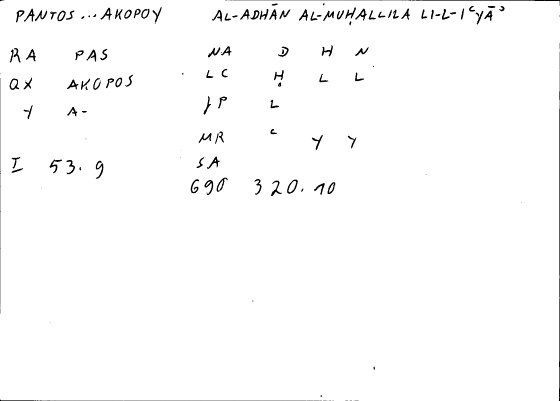 PANTOS ... AKOPOY AL-ADHĀN AL-MUḤALLILA LI-L-IʿYĀʾ
RA PAS NA D H N
QX AKOPOS LC Ḥ L L
Y A- JP L
MR ʿ Y Y
I 53.9 SA
690 320.10